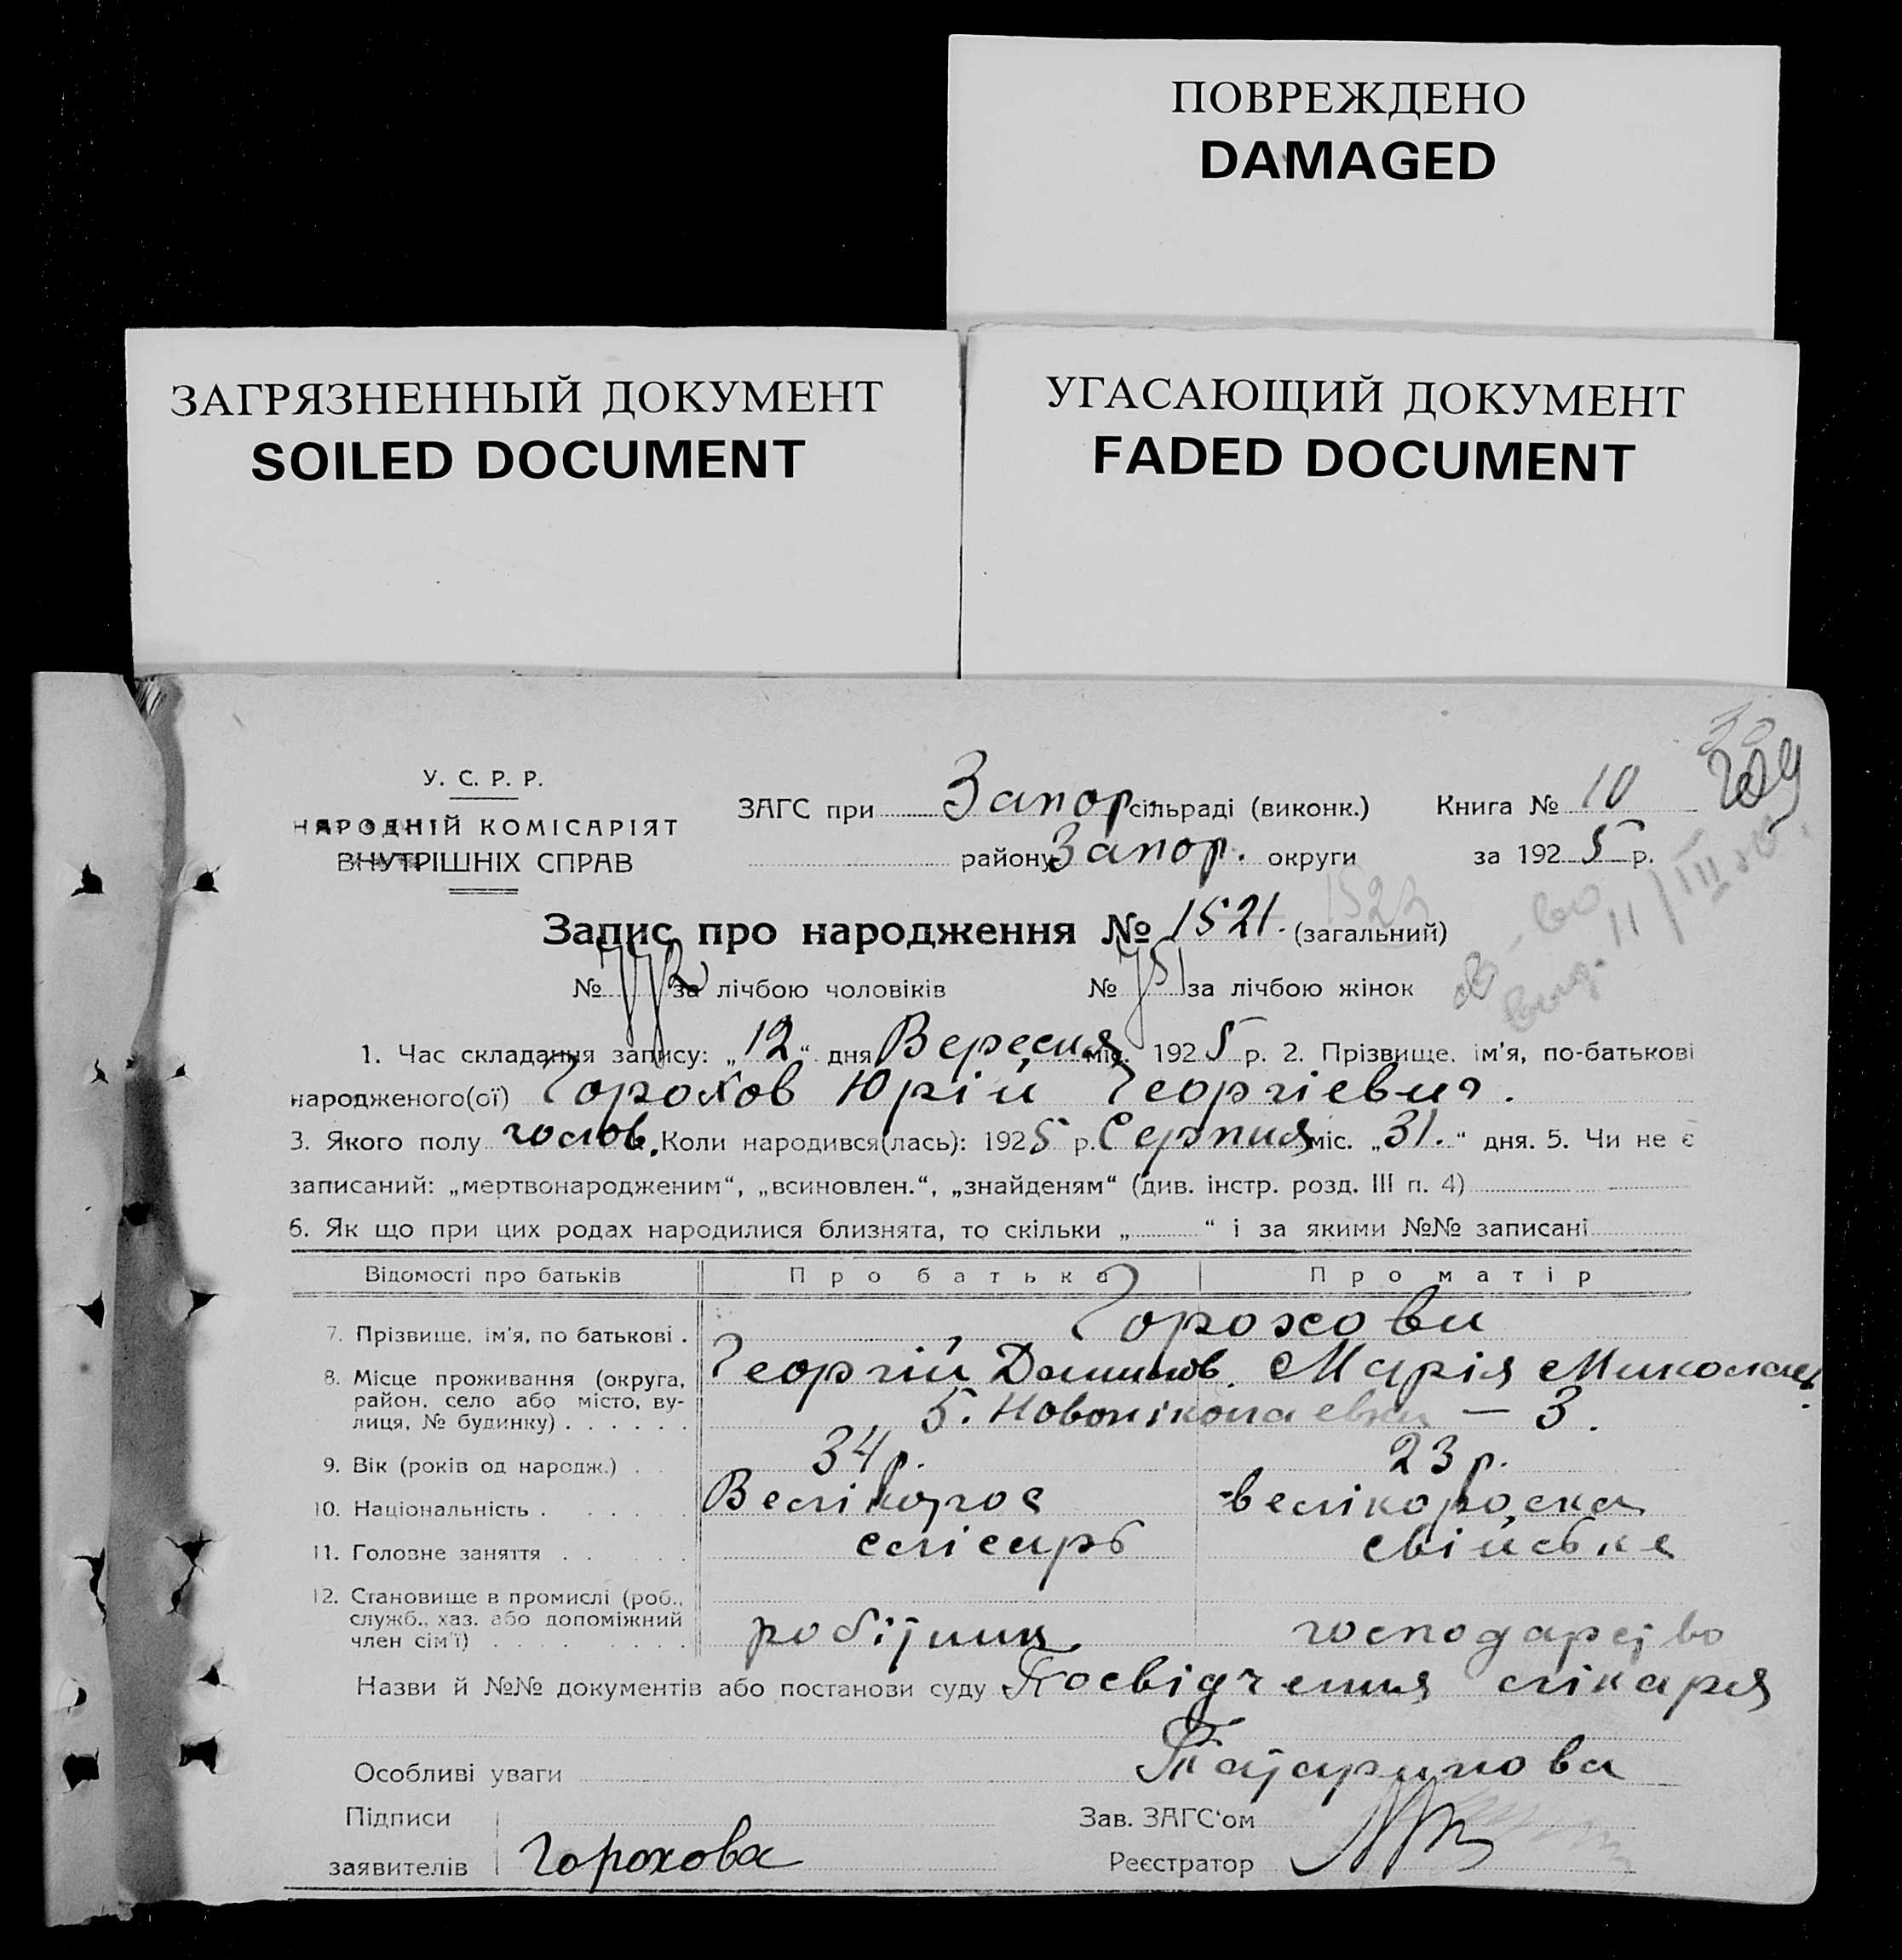 ПОВРЕЖДЕНО
DAMAGED
ЗАГРЯЗНЕННЫЙ ДОКУМЕНТ
SOILED DOCUMENT
УГАСАЮЩИЙ ДОКУМЕНТ
FADED DOCUMENT
30
У. С. Р. Р.
НАРОДНІЙ КОМІСАРІЯТ
ВНУТРІШНІХ СПРАВ
ЗАГС при Запор. сільраді (виконк.) Книга № 10
району Запор. округи за 1925 р.
Запис про народження № 1521. (загальний) 1522
№ за лічбою чоловіків № 751 за лічбою жінок
1. Час складання запису: „12“ дня Вересня міс. 1925 р. 2. Прізвище, ім'я, по-батькові
народженого(ої) Горохов Юрій Георгієвич.
3. Якого полу чолов. Коли народився(лась): 1925 р. Серпня міс. „31.“ дня. 5. Чи не є
записаний: „мертвонародженим“, „всиновлен.“, „знайденям“ (див. інстр. розд. III п. 4)
6. Як що при цих родах народилися близнята, то скільки „ “ і за якими №№ записані
Відомості про батьків Про батька Про матір
7. Прізвище, ім'я, по батькові . Горохови
Георгій Марія Миколаєв.
8. Місце проживання (округа, район, село або місто, вулиця, № будинку) . . . . . . Б. Новониколаевка — 3.
9. Вік (років од народж.) . . 34 р. 23 р.
10. Національність . . . . . . Велікорос великороска
11. Головне заняття . . . . . слісарь свійське
12. Становище в промислі (роб., служб., хаз. або допоміжний член сім'ї) . . . . . . . . робітник господарство
Назви й №№ документів або постанови суду Посвідчення лікаря
Татаринова
Особливі уваги
Підписи Зав. ЗАГС'ом
заявителів Горохова Реєстратор